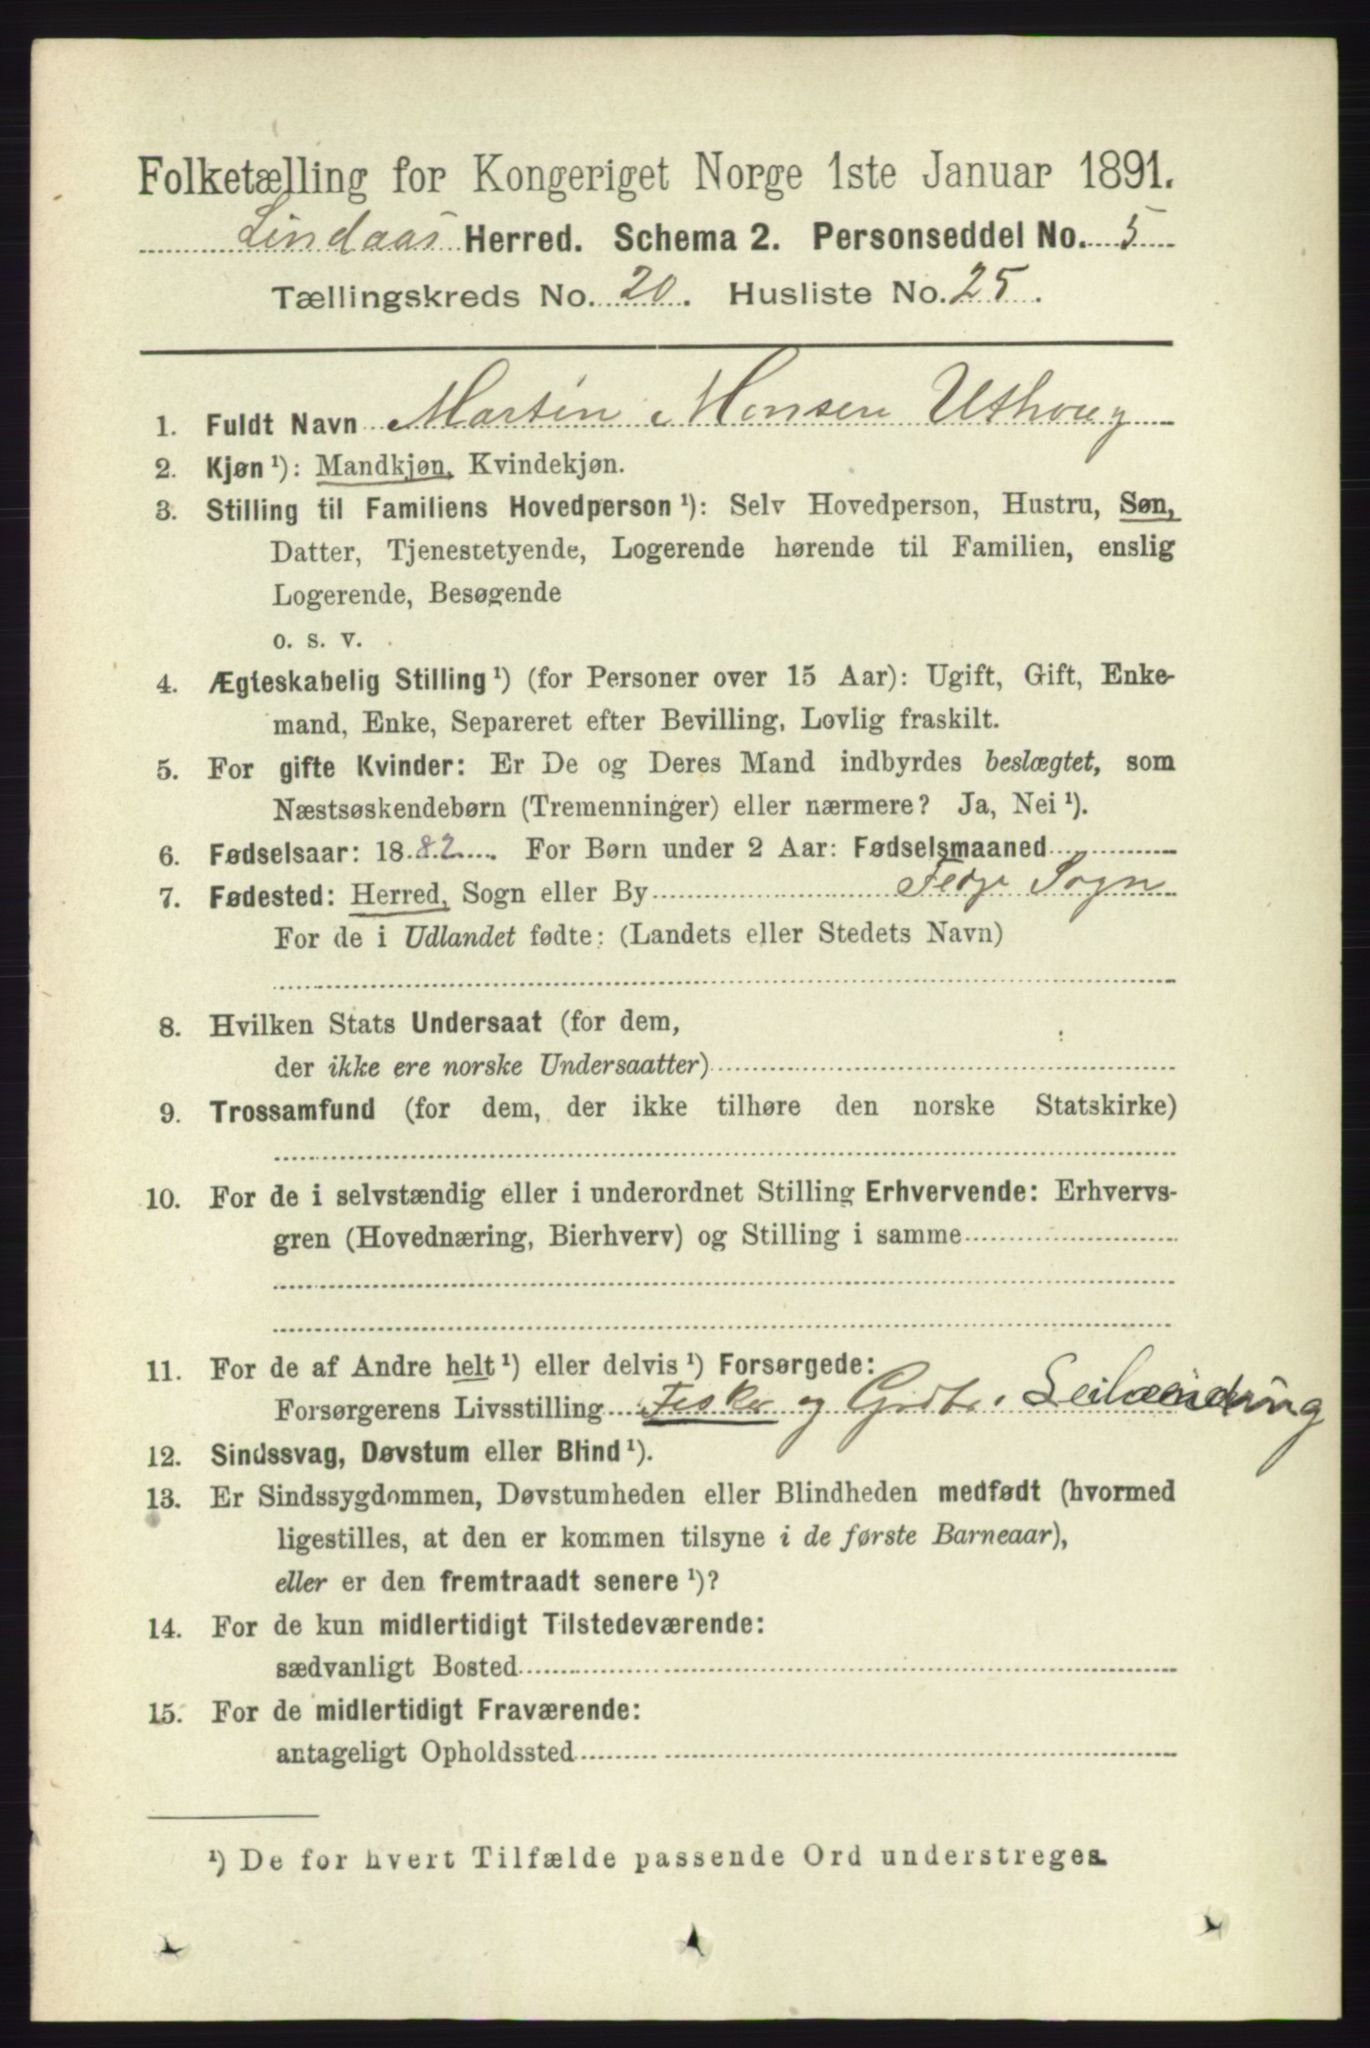 Folketælling for Kongeriget Norge 1ste Januar 1891.
Lindaas Herred. Schema 2. Personseddel No. 5
Tællingskreds No. 20. Husliste No. 25.
1. Fuldt Navn Martin Monsen Uthoug
2. Kjøn ¹): Mandkjøn, Kvindekjøn.
3. Stilling til Familiens Hovedperson ¹): Selv Hovedperson, Hustru, Søn,
Datter, Tjenestetyende, Logerende hørende til Familien, enslig
Logerende, Besøgende
o. s. v.
4. Ægteskabelig Stilling ¹) (for Personer over 15 Aar): Ugift, Gift, Enke-
mand, Enke, Separeret efter Bevilling, Lovlig fraskilt.
5. For gifte Kvinder: Er De og Deres Mand indbyrdes beslægtet, som
Næstsøskendebørn (Tremenninger) eller nærmere? Ja, Nei ¹).
6. Fødselsaar: 1882 For Børn under 2 Aar: Fødselsmaaned
7. Fødested: Herred, Sogn eller By Fedje Sogn
For de i Udlandet fødte: (Landets eller Stedets Navn)
8. Hvilken Stats Undersaat (for dem,
der ikke ere norske Undersaatter)
9. Trossamfund (for dem, der ikke tilhøre den norske Statskirke)
10. For de i selvstændig eller i underordnet Stilling Erhvervende: Erhvervs-
gren (Hovednæring, Bierhverv) og Stilling i samme
11. For de af Andre helt ¹) eller delvis ¹) Forsørgede:
Forsørgerens Livsstilling Fisker og Grdbr.
12. Sindssvag, Døvstum eller Blind ¹).
13. Er Sindssygdommen, Døvstumheden eller Blindheden medfødt (hvormed
ligestilles, at den er kommen tilsyne i de første Barneaar),
eller er den fremtraadt senere ¹)?
14. For de kun midlertidigt Tilstedeværende:
sædvanligt Bosted
15. For de midlertidigt Fraværende:
antageligt Opholdssted
¹) De for hvert Tilfælde passende Ord understreges.